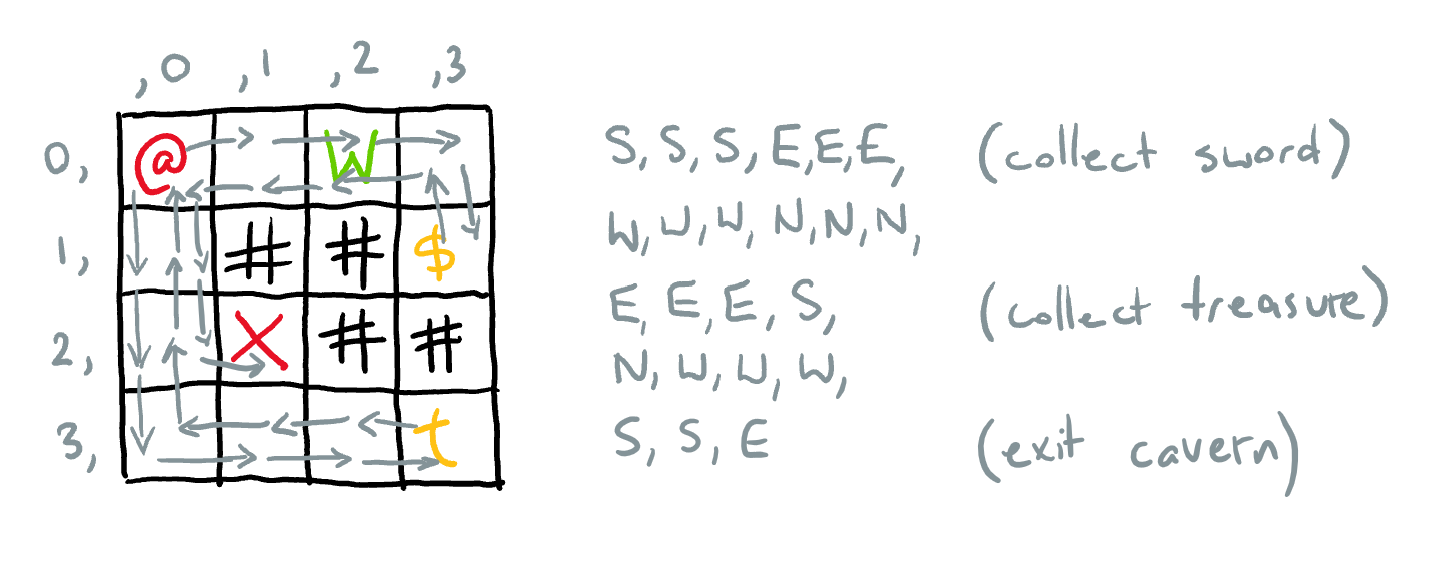 ,0 ,1 ,2 ,3
0, @ W S, S, S, E, E, E, (collect sword)
W, W, W, N, N, N,
1, # # $
E, E, E, S, (collect treasure)
2, X # #
N, W, W, W,
3, t S, S, E (exit cavern)